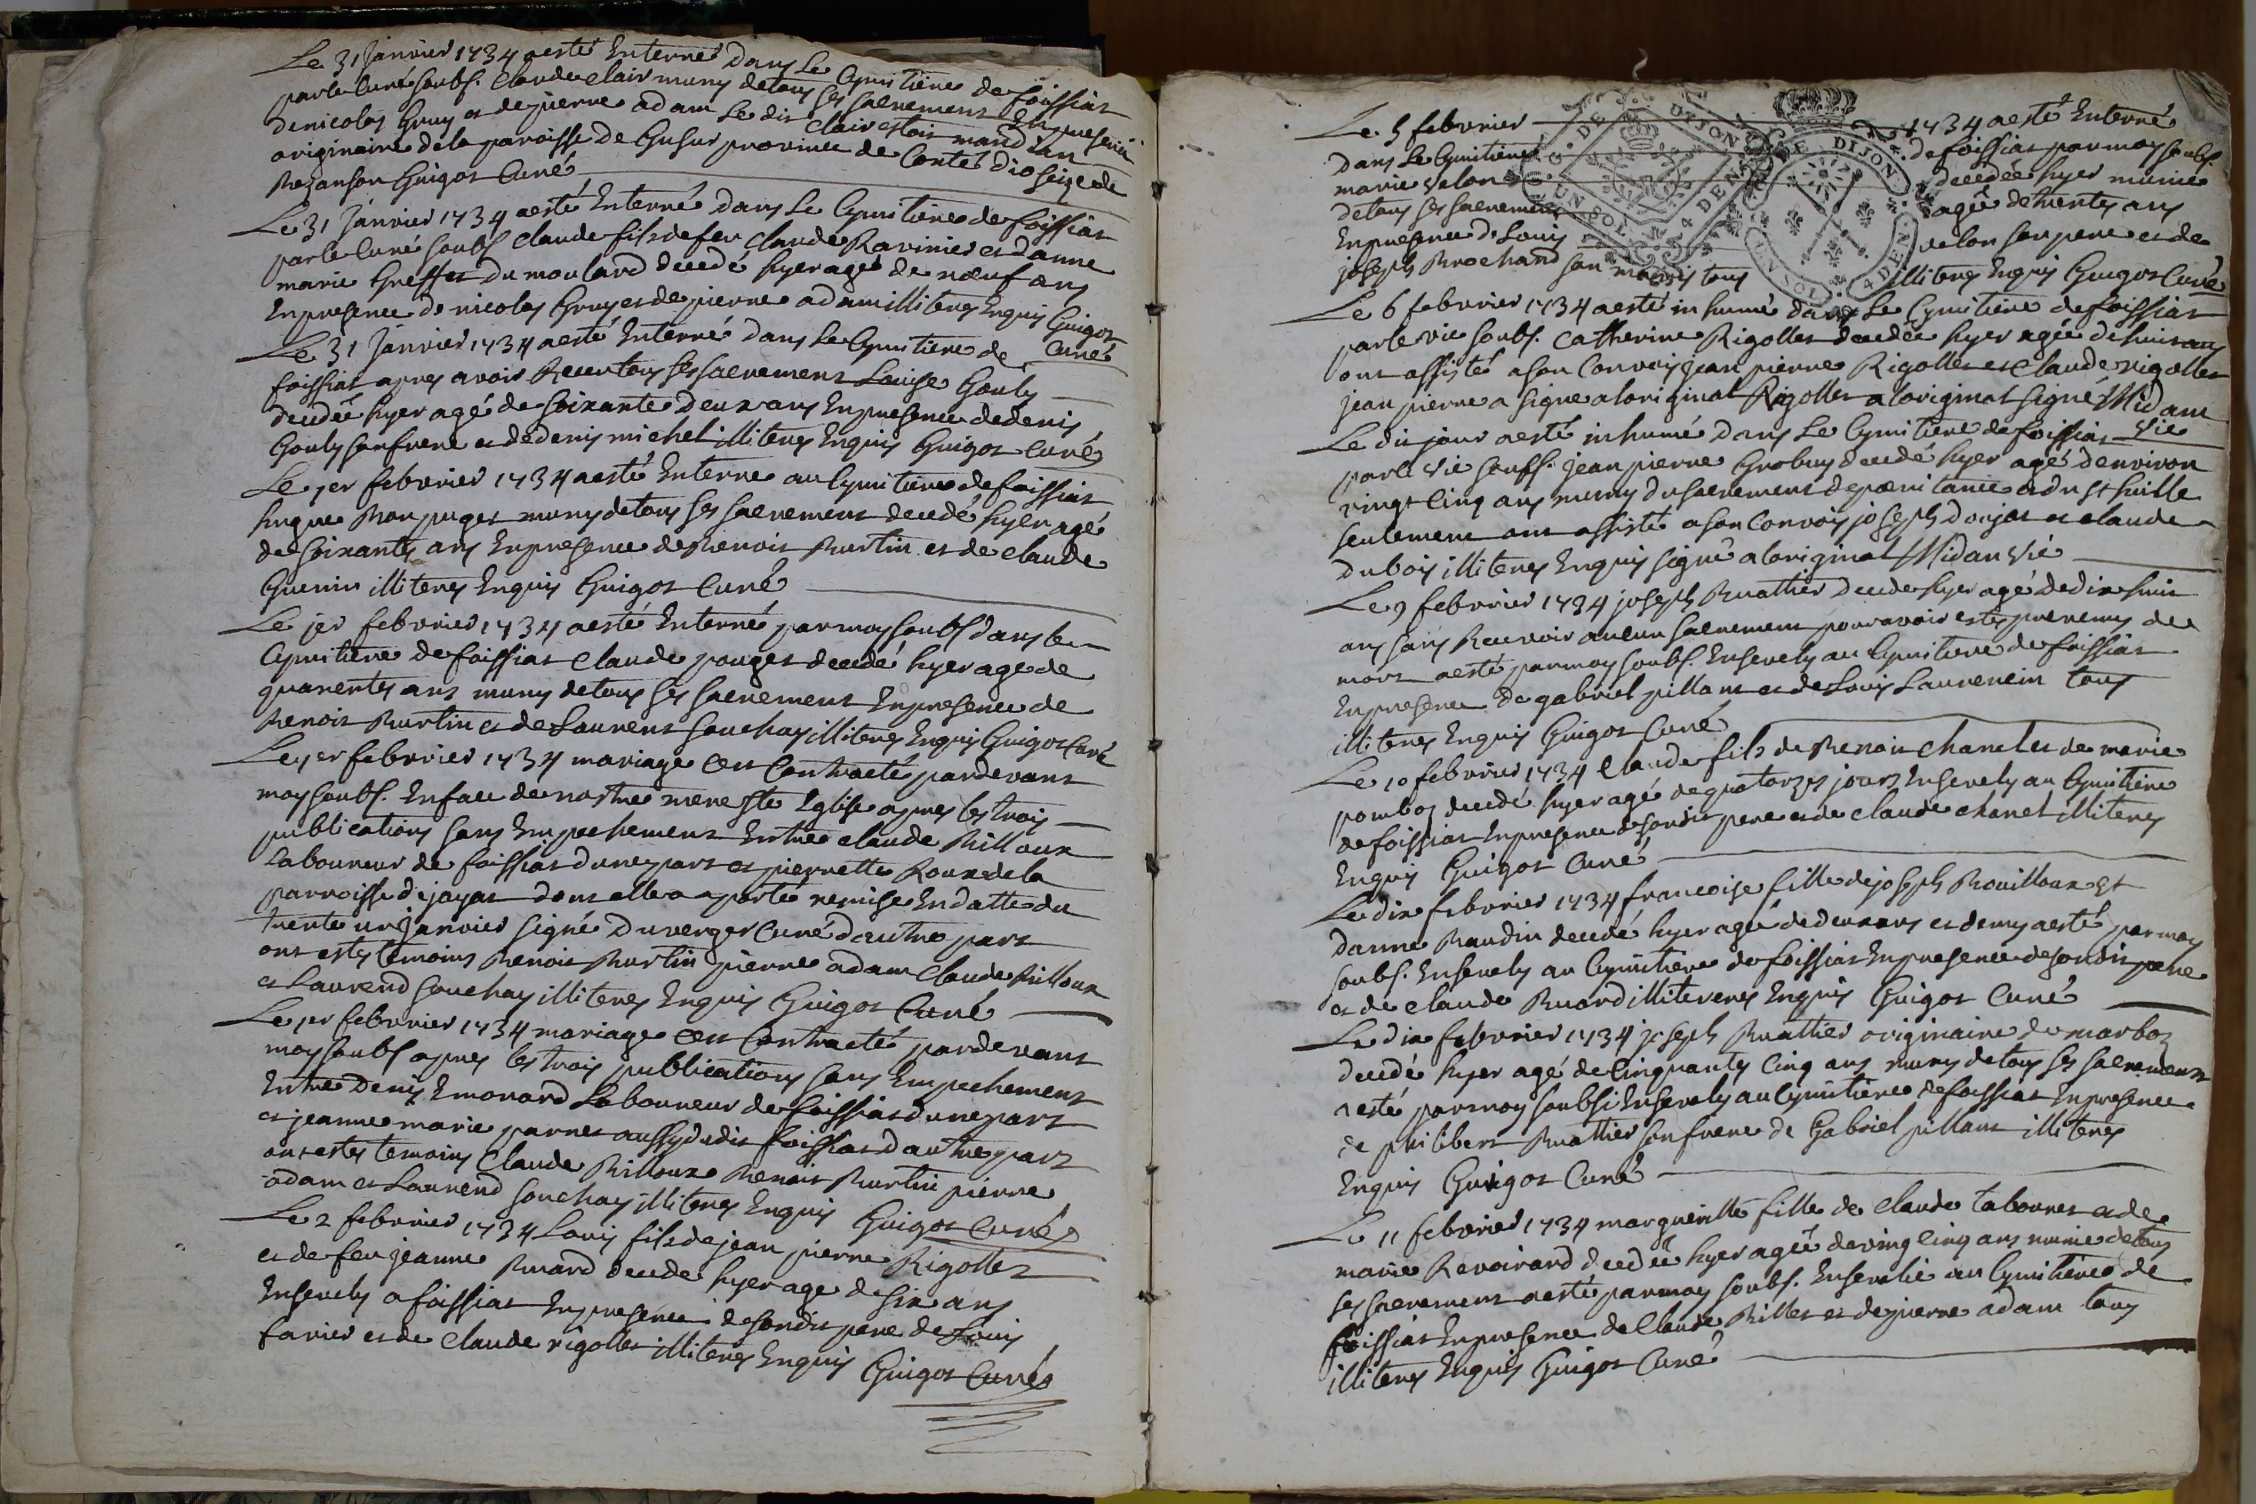 Le 31 Janvier 1734 aesté Enterré dans Le Cymitiere de foissiat
par le Curé soubs. Claude Clair muny de tous ses sacrement En presence
de nicolas Gruy et de pierre adam Le dit Clair estoit mandian
originaire de la paroisse de province de Conté dioseize de
Bezanson Guigot Curé
Le 31 Janvier 1734 aesté Enterré dans Le Cymitiere de foissiat
par le Curé soubs Claude fils de feu Claude Ravinier et danne
marie Greffet du moulard decedé hyer agé de nœuf ans
En presence de nicolas Gruy et de pierre adam illiteres Enquis Guigot
Curé
Le 31 Janvier 1734 aesté Enterré dans Le Cymitiere de
foissiat apres avoir Receu tous ses sacrement Louise Gouly
decedée hyer agé de soixante deux ans En presence de denis
Gouly son frere et de denis michel illiteres Enquis Guigot Curé
Le 1er febvrier 1734 aesté Enterré au Cymitiere de foissiat
hugue Mon puget muny de tous ses sacrement decedé hyer agé
de soixante ans En presence de Benoit Burtin et de Claude
Guerin illiteres Enquis Guigot Curé
Le 1er febvrier 1734 aesté Enterré par moy soubs dans le
Cymitiere de foissiat Claude pouget decedé hyer age de
quarente ans muny de tous ses sacrement En presence de
Benoit Burtin et de Laurent souchay illiteres Enquis Guigot Curé
Le 1er febvrier 1734 mariage Est Contracté pardevant
moy soubs. En face de nostre mere Ste Eglise apres les trois
publications sans Empechement Entre Claude Billoux
Laboureur de foissiat dune part et pierrette Roux de la
parroisse de jayat dont elle a aporté remise En datte du
trente un Janvier signé Duverger Curé dautre part
ont estes temoins Benoit Burtin pierre adam Claude Billoux
et Laurend souchay illiteres Enquis Guigot Curé
Le 1er febvrier 1734 mariage Est Contracté pardevant
moy soubs apres les trois publications sans Empechement
Entre Denis Emonard Laboureur de foissiat dune part
et jeanne marie parnet aussy dudit foissiat dautre part
ont estes temoins Claude Billoux Benoit Burtin pierre
adam et Laurend souchay illiteres Enquis Guigot Curé
Le 2 febvrier 1734 Louis fils de jean pierre Rigollet
et de feu jeanne Buard decede hyer age de six ans
Ensevely a foissiat En presence de sondit pere de Louis
farier et de Claude rigollet illiteres Enquis Guigot Curé
Le 5 febvrier 1734 aesté Enterré
dans Le Cymitiere de foissiat par moy soubs.
marie velon decedée hyer munie
de tous ses sacrement agée de trente ans
En presence de Louis velon son pere et de
joseph Brochand son mary tous illiteres Enquis Guigot Curé
G. DE DIJON UN SOL 4 DEN
G. DE DIJON UN SOL 4 DEN
Le 6 febvrier 1734 aesté inhumé dans Le Cymitiere de foissiat
par le vic soubs. Catherine Rigollet decedée hyer agée de huit ans
ont assisté a son Convoy jean pierre Rigollet et Claude rigollet
jean pierre a signe a loriginal Rigollet a loriginal signé Midan
vic
Le dit jour aesté inhumé dans Le Cymitiere de foissiat
par le vic souss. jean pierre Grobuy decedé hyer agé denviron
vingt Cinq ans muny du sacrement de pœnitance et du st huille
seulement ont assisté a son Convoy joseph donjat et Claude
dubois illiteres Enquis signé a loriginal Midan vic
Le 9 febvrier 1734 joseph Buathier decede hyer agé de dix huit
ans sans Recevoir aucun sacrement pour avoir estes prevenus de
mort aesté par moy soubs. Ensevely au Cymitiere de foissiat
En presence de gabriel pillant et de Louis Laurencin tous
illiteres Enquis Guigot Curé
Le 10 febvrier 1734 Claude fils de Benoit Chanel et de marie
pomboz decedé hyer agé de quatorze jours Ensevely au Cymitiere
de foissiat En presence de sondit pere et de Claude chanel illiteres
Enquis Guigot Curé
Le dix febvrier 1734 francoise fille de joseph Bouilloux Et
danne Baudin decedé hyer agé de deux ans et demy aesté par moy
soubs. Ensevely au Cymitiere de foissiat En presence de sondit pere
et de Claude Buard illiteres Enquis Guigot Curé
Le dix febvrier 1734 joseph Buathier originaire de marboz
decedé hyer agé de Cinquante Cinq ans muny de tous ses sacrement
aesté par moy soubs. Ensevely au Cymitiere de foissiat En presence
de philibert Buathier son frere de Gabriel pillant illiteres
Enquis Guigot Curé
Le 11 febvrier 1734 margueritte fille de Claude tabouret et de
marie Revoirard decedée hyer agée de vingt Cinq ans munie de tous
ses sacrement aesté par moy soubs. Ensevelie au Cymitiere de
foissiat En presence de Claude Billet et de pierre adam tous
illiteres Enquis Guigot Curé